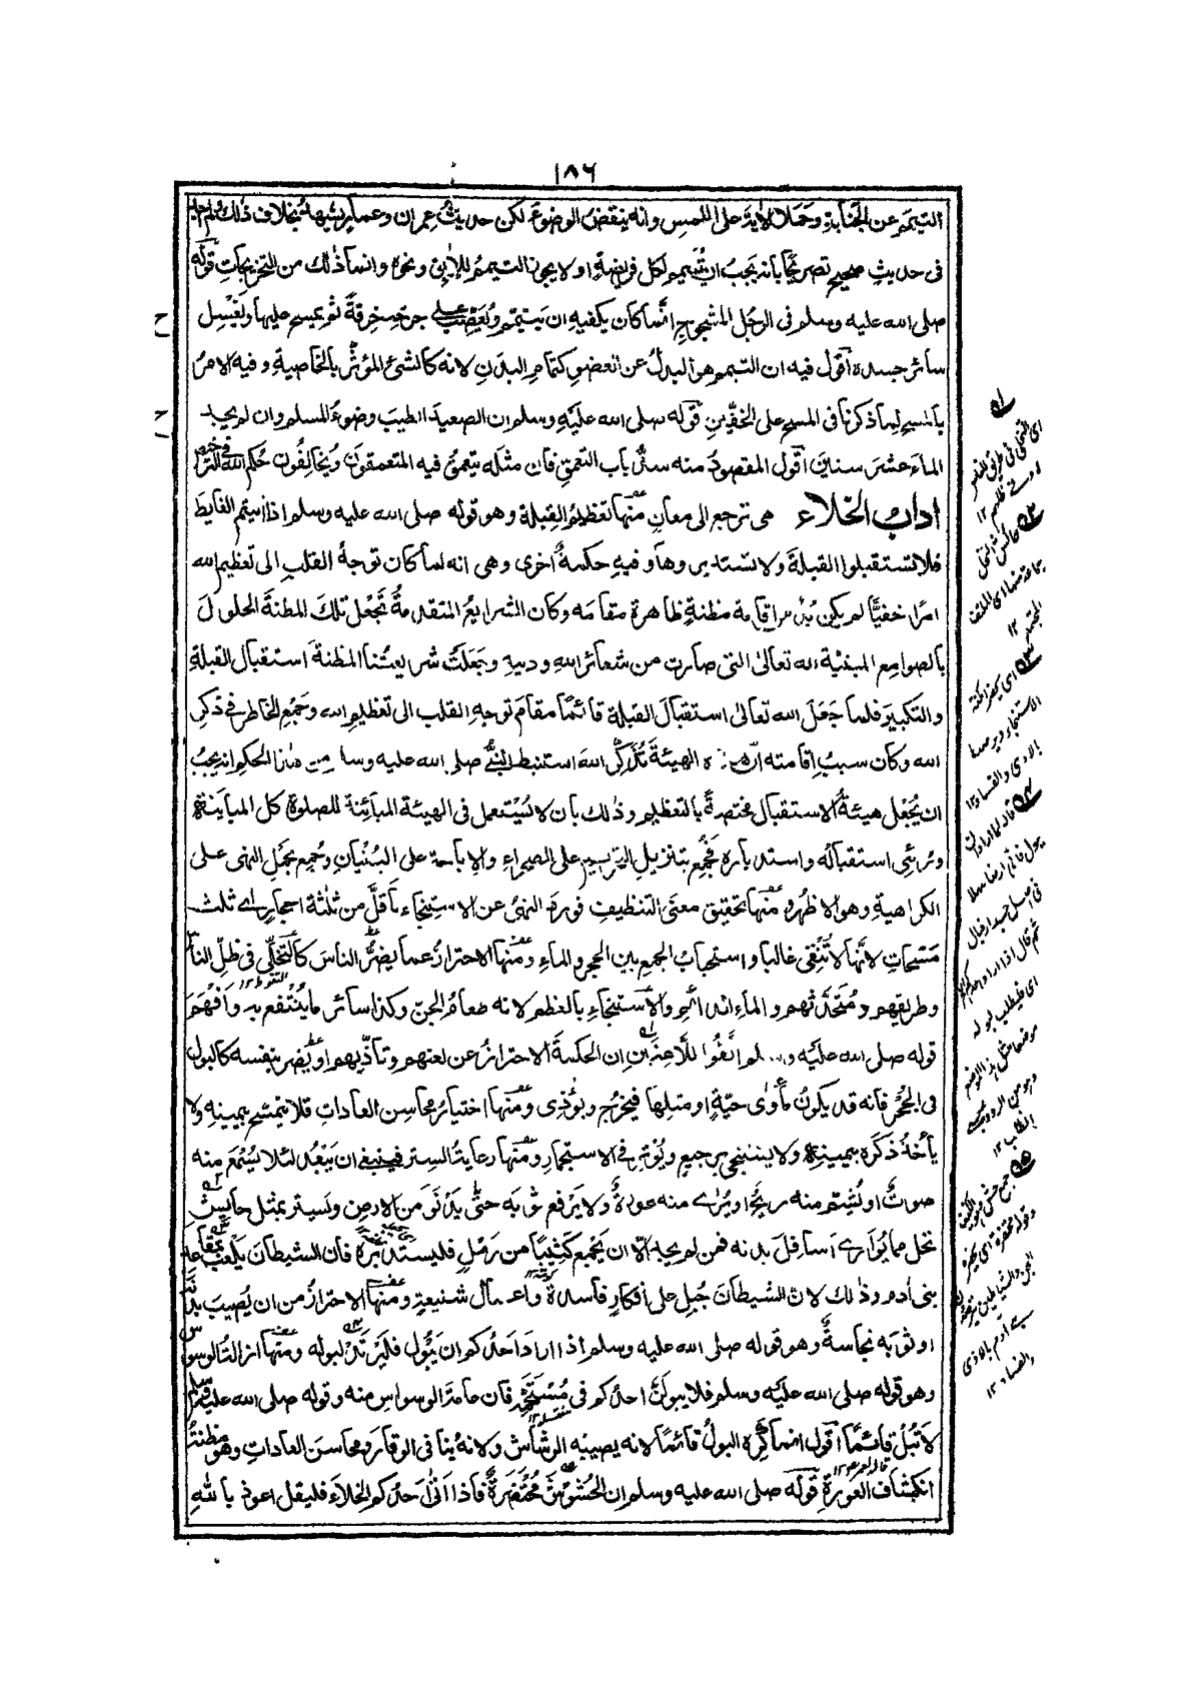 ١٨٦
التيمم عن الجنابة وحملا الآية على اللمس وانه ينقض الوضوء لكن حديث عمران وعمار يشهد بخلاف ذلك ولم اجد
فى حديث صحيح تصريحا بانه يجب ان يتيمم لكل فريضة او لا يجوز التيمم للآبق ونحوه وانما ذلك من التخريجات قوله
صلى الله عليه وسلم فى الرجل المشجوج انما كان يكفيه ان يتيمم ويعصب على جرحه خرقة ثم يمسح عليها ويغسل
سائر جسده اقول فيه ان التيمم هو البدل عن العضو كتمام البدن لانه كالشئ المؤثر بالخاصية وفيه الامر
بالمسح لما ذكرنا فى المسح على الخفين قوله صلى الله عليه وسلم ان الصعيد الطيب وضوء المسلم وان لم يجد
الماء عشر سنين اقول المقصود منه سد باب التعمق فان مثله يتعمق فيه المتعمقون ويخالفون حكم الله فى الترخيص
اداب الخلاء هى ترجع الى معان منها تعظيم القبلة وهو قوله صلى الله عليه وسلم اذا اتيتم الغايط
فلا تستقبلوا القبلة ولا تستدبروها وفيه حكمة أخرى وهى انه لما كان توجه القلب الى تعظيم الله
امرا خفيا لم يكن بد من اقامة مظنة ظاهرة مقامه وكان الشرايع المتقدمة تجعل تلك المظنة الحلول
بالصوامع المبنية لله تعالى التى صارت من شعائر الله ودينه وجعلت شريعتنا المظنة استقبال القبلة
والتكبير فلما جعل الله تعالى استقبال القبلة قائما مقام توجه القلب الى تعظيم الله وجمع الخاطر فى ذكر
الله وكان سبب اقامته ان هذه الهيئة تذكر الله استنبط النبى صلى الله عليه وسلم من هذا الحكم انه يجب
ان يجعل هيئة الاستقبال مختصة بالتعظيم وذلك بان لا يستعمل فى الهيئة المباينة للصلوة كل المباينة
ورئى استقباله واستدباره فجمع بتنزيل التحريم على الصحراء والاباحة على البنيان وجمع بحمل النهى على
الكراهية وهو الاظهر ومنها تحقيق معنى التنظيف فورد النهى عن الاستنجاء باقل من ثلثة احجار اى ثلث
مسحات لانها لا تنقى غالبا واستحباب الجمع بين الحجر والماء ومنها الاحتراز عما يضر الناس كالتخلى فى ظل الناس
وطريقهم ومتحدثهم والماء الدائم والاستنجاء بالعظم لانه طعام الجن وكذا سائر ما ينتفع به وافهم
قوله صلى الله عليه وسلم اتقوا اللاعنان ان الحكمة الاحتراز عن لعنهم وتأذيهم او يضر بنفسه كالبول
فى الجحر فانه قد يكون مأوى حية او مثلها فيخرج ويؤذى ومنها اختيار محاسن العادات فلا يتمسح بيمينه ولا
يأخذ ذكره بيمينه ولا يستنجى برجيع ويؤتر فى الاستجمار ومنها رعاية الستر فينبغى ان يبعد لئلا يسمع منه
صوت او يشم منه ريح او يرى منه عورة ولا يرفع ثوبه حتى يدنو من الارض ويستتر بمثل حايش
نخل مما يوارى أسافل بدنه فمن لم يجد الا ان يجمع كثيبا من رمل فليستدبره فان الشيطان يلعب بمقاعد
بنى آدم وذلك لان الشيطان جبل على أفكار فاسدة وأعمال شنيعة ومنها الاحتراز من ان يصيب بدنه
او ثوبه نجاسة وهو قوله صلى الله عليه وسلم اذا اراد احدكم ان يبول فليرتد لبوله ومنها ازالة الوسواس
وهو قوله صلى الله عليه وسلم فلا يبولن احدكم فى مستحمه فان عامة الوسواس منه وقوله صلى الله عليه وسلم
لا تبل قائما اقول انما كره البول قائما لانه يصيبه الرشاش ولانه ينافى الوقار ومحاسن العادات وهو مظنة
انكشاف العورة قوله صلى الله عليه وسلم ان الحشوش محتضرة فاذا اتى احدكم الخلاء فليقل اعوذ بالله